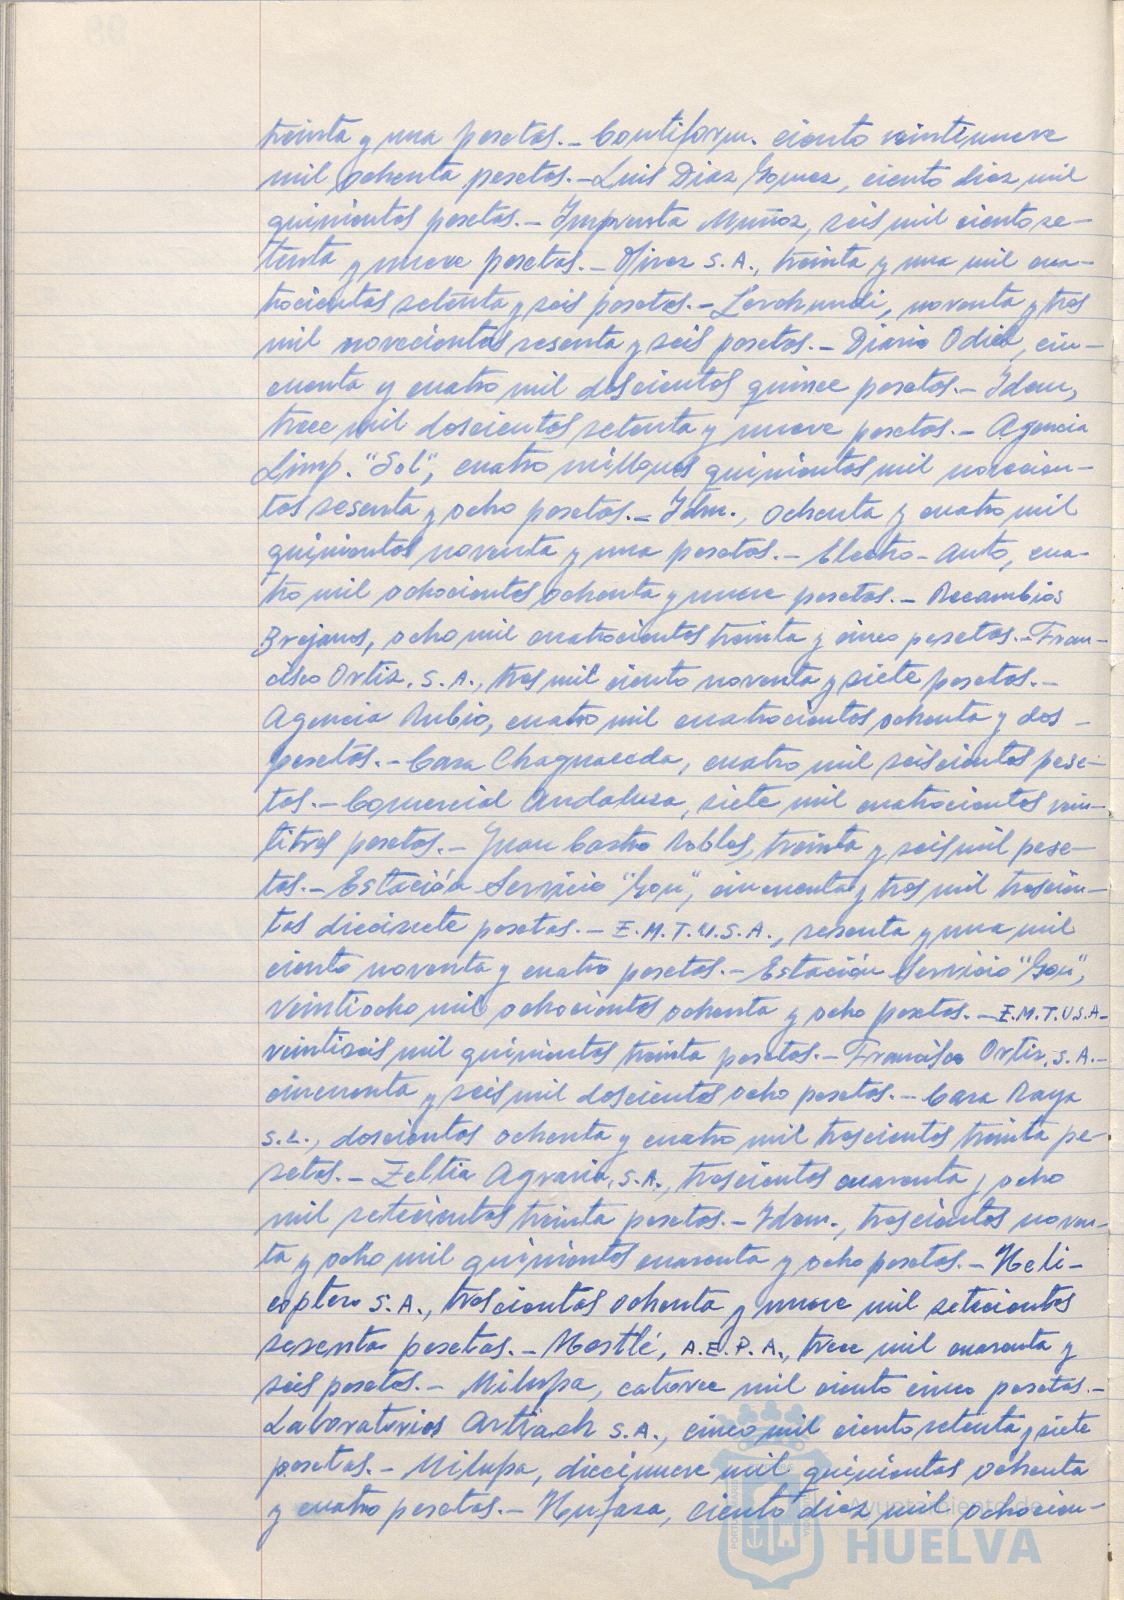 treinta y una pesetas.- Contiform. ciento veintinueve
mil ochenta pesetas.- Luis Diaz Gomez, ciento diez mil
quinientas pesetas.- Imprenta Muñoz, seis mil ciento se-
tenta y nueve pesetas.- S.A., treinta y una mil cua-
trocientas setenta y seis pesetas.- Lerchundi, noventa y tres
mil novecientas sesenta y seis pesetas.- Diario Odiel, cin-
cuenta y cuatro mil doscientas quince pesetas.- Idem,
trece mil doscientas setenta y nueve pesetas.- Agencia
Limp. "Sol", cuatro millones quinientas mil novecien-
tas sesenta y ocho pesetas.- Idm., ochenta y cuatro mil
quinientas noventa y una pesetas.- Electro-Auto, cua-
tro mil ochocientas ochenta y nueve pesetas.- Recambios
Brejanos, ocho mil cuatrocientas treinta y cinco pesetas.- Fran-
cisco Ortiz, S.A., tres mil ciento noventa y siete pesetas.-
Agencia Rubio, cuatro mil cuatrocientas ochenta y dos -
pesetas.- Casa Chaguaceda, cuatro mil seiscientas pese-
tas.- Comercial Andaluza, siete mil cuatrocientas vein-
titres pesetas.- Juan Castro Robles, treinta y seis mil pese-
tas.- Estación Servicio "Gon", cincuenta y tres mil trescien-
tas diecisiete pesetas.- E.M.T.U.S.A., sesenta y una mil
ciento noventa y cuatro pesetas.- Estación Servicio "Gon",
veintiocho mil ochocientas ochenta y ocho pesetas.- E.M.T.U.S.A-
veintiseis mil quinientas treinta pesetas.- Francisco Ortiz, S.A.-
cincuenta y seis mil doscientas ocho pesetas.- Casa Raya
S.L., doscientas ochenta y cuatro mil trescientas treinta pe-
setas.- Zeltia Agraria, S.A., trescientas cuarenta y ocho
mil setecientas treinta pesetas.- Idem., trescientas noven-
ta y ocho mil quinientas cuarenta y ocho pesetas.- Heli-
coptero S.A., trescientas ochenta y nueve mil setecientas
sesenta pesetas.- Nestlé, A.E.P.A., trece mil cuarenta y
seis pesetas.- Milupa, catorce mil ciento cinco pesetas.-
Laboratorios Artiach S.A., cinco mil ciento setenta y siete
pesetas.- Milupa, diecinueve mil quinientas ochenta
y cuatro pesetas.- Hufasa, ciento diez mil ochocien-
Ayuntamiento de
HUELVA